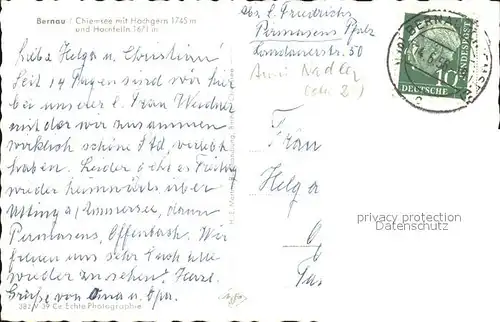 Bernau / Chiemsee mit Hochgern 1745 m
und Hochfelln 1671 m
Liebe Helga u. Christian!
Seit 14 Tagen sind wir hier
bei unserer l. Frau Weidner
mit der wir zusammen
wirklich schöne Std. verlebt
haben. Leider geht es Freitag
wieder heimwärts über
Utting a/Ammersee, dann
Pirmasens, Offenbach. Wir
freuen uns sehr Euch alle
wieder zu sehen. Herzl.
Grüße von Oma u. Opa.
381 V 39 Cc Echte Photographie
Abs. E. Friedrichs
Pirmasens Pfalz
Landauerstr. 50
BERN
10
DEUTSCHE
BUNDESPOST
Frau
Helga
privacy protection
Datenschutz